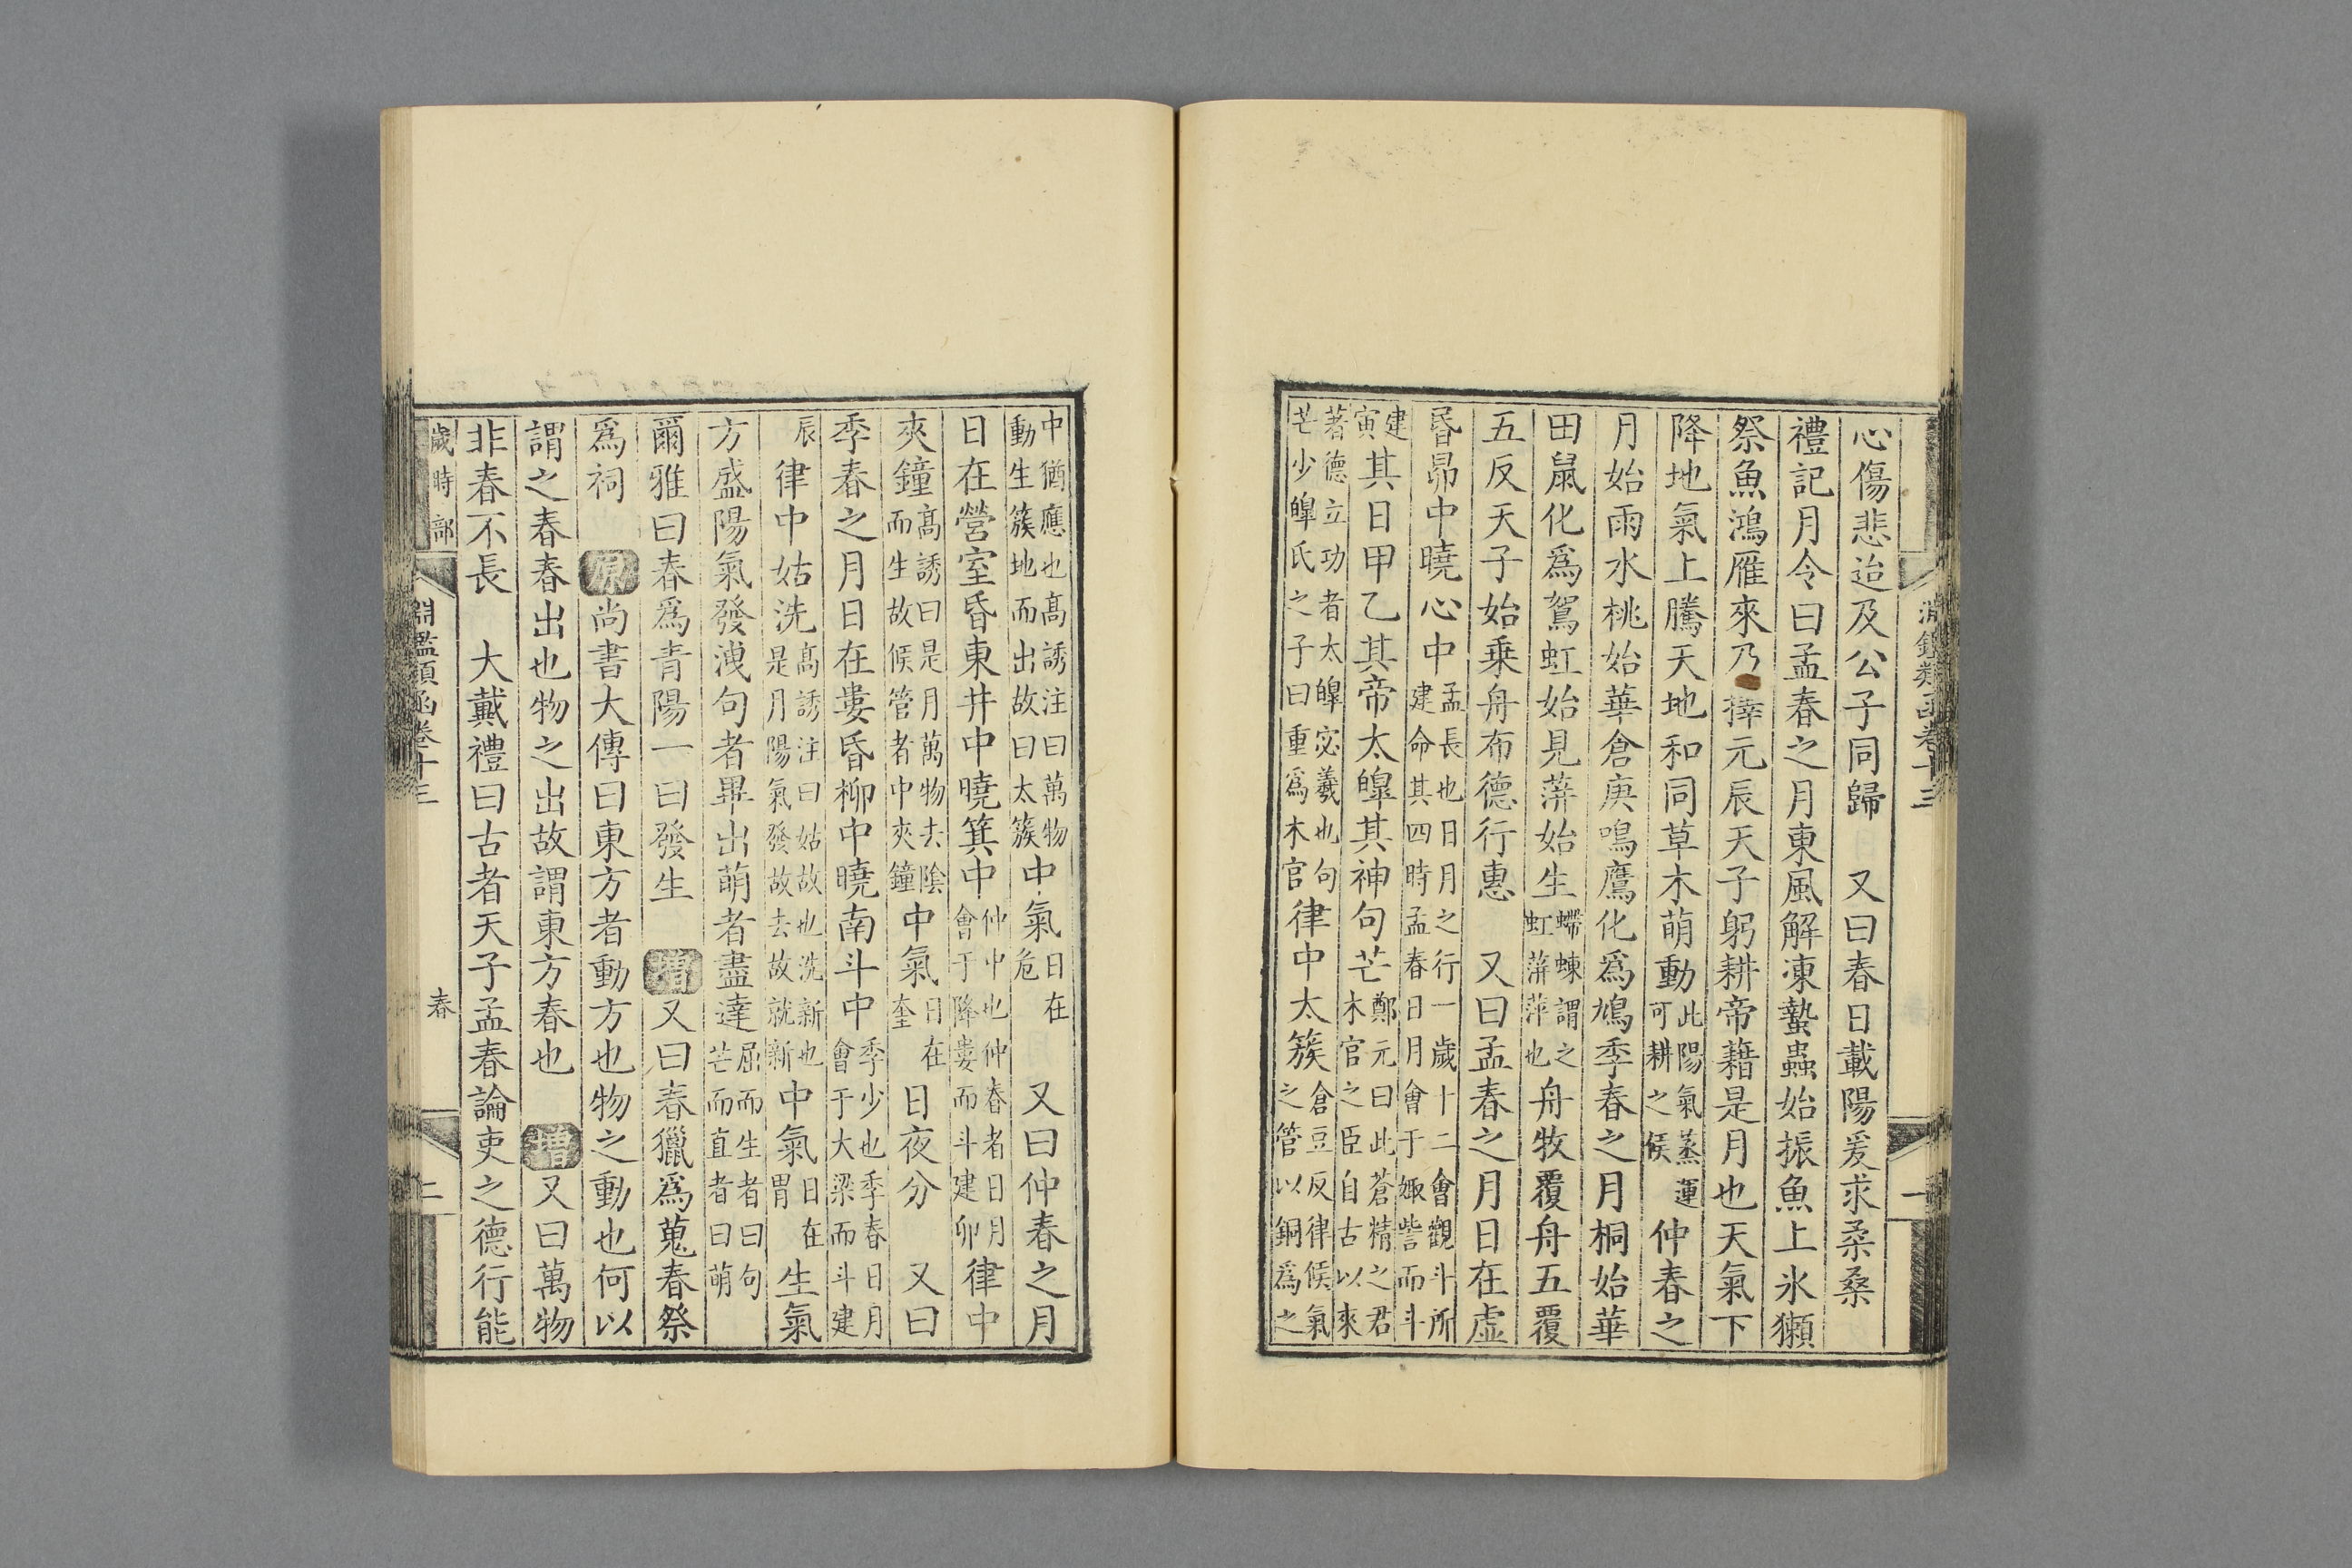 淵鑑類函卷十三　一
心傷悲迨及公子同歸　又曰春日載陽爰求柔桑
禮記月令曰孟春之月東風解凍蟄蟲始振魚上氷獺
祭魚鴻雁來乃擇元辰天子躬耕帝籍是月也天氣下
降地氣上騰天地和同草木萌動此陽氣蒸運可耕之候仲春之
月始雨水桃始華倉庚鳴鷹化爲鳩季春之月桐始華
田鼠化爲鴽虹始見蓱始生螮蝀謂之虹蓱萍也舟牧覆舟五覆
五反天子始乗舟布德行惠　又曰孟春之月日在虛
昬昴中曉心中孟長也日月之行一歲十二會觀斗所建命其四時孟春日月會于娵訾而斗
建寅其日甲乙其帝太皥其神句芒鄭元曰此蒼精之君木官之臣自古以來
著德立功者太皥宓羲也句芒少皥氏之子曰重爲木官律中太簇倉豆反律候氣之管以銅爲之
中猶應也高誘注曰萬物動生簇地而出故曰太簇中氣日在危　又曰仲春之月
日在營室昏東井中曉箕中仲中也仲春者日月會于降婁而斗建卯律中
夾鐘高誘曰是月萬物去陰而生故候管者中夾鐘中氣日在奎日夜分　又曰
季春之月日在婁昏柳中曉南斗中季少也季春日月會于大梁而斗建
辰律中姑洗高誘注曰姑故也洗新也是月陽氣發故去故就新中氣日在胃生氣
方盛陽氣發洩句者畢出萌者盡達屈而生者曰句芒而直者曰萌
爾雅曰春爲青陽一曰發生　增又曰春獵爲蒐春祭
爲祠　原尚書大傳曰東方者動方也物之動也何以
謂之春春出也物之出故謂東方春也　增又曰萬物
非春不長　大戴禮曰古者天子孟春論吏之德行能
歲時部　淵鑑類函卷十三　春　二